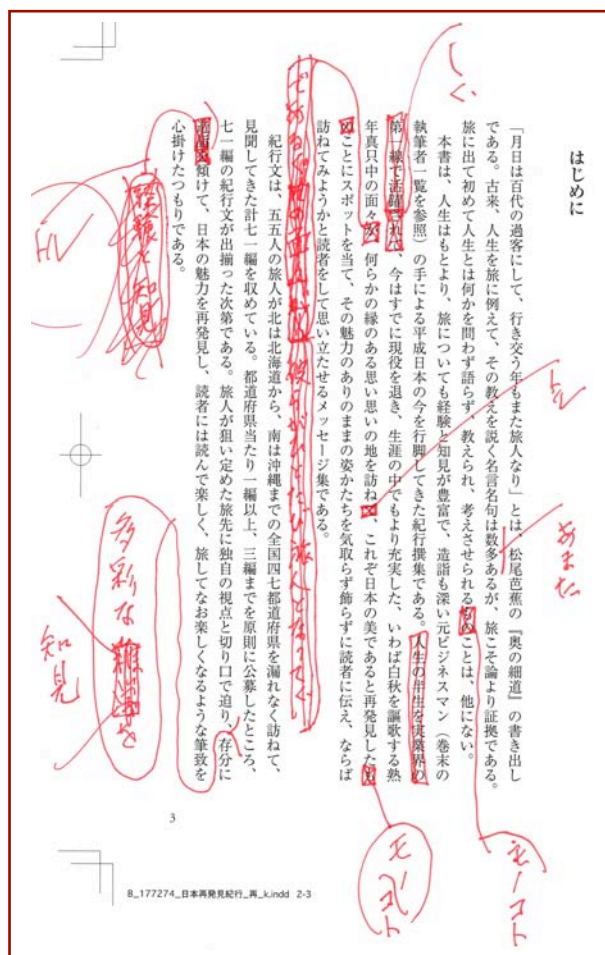 はじめに
「月日は百代の過客にして、行き交う年もまた旅人なり」とは、松尾芭蕉の『奥の細道』の書き出し
である。古来、人生を旅に例えて、その教えを説く名言名句は数多あるが、旅こそ論より証拠である。
旅に出て初めて人生とは何かを問わず語らず、教えられ、考えさせられるものことは、他にない。
本書は、人生はもとより、旅についても経験と知見が豊富で、造詣も深い元ビジネスマン（巻末の
執筆者一覧を参照）の手による平成日本の今を行脚してきた紀行撰集である。人生の半生を実業界の
第一線で活躍されて、今はすでに現役を退き、生涯の中でもより充実した、いわば白秋を謳歌する熟
年真只中の面々が、何らかの縁のある思い思いの地を訪ね、これぞ日本の美であると再発見したも
のことにスポットを当て、その魅力のありのままの姿かたちを気取らず飾らずに読者に伝え、ならば
訪ねてみようかと読者をして思い立たせるメッセージ集である。
紀行文は、五五人の旅人が北は北海道から、南は沖縄までの全国四七都道府県を漏れなく訪ねて、
見聞してきた計七一編を収めている。都道府県当たり一編以上、三編までを原則に公募したところ、
七一編の紀行文が出揃った次第である。旅人が狙い定めた旅先に独自の視点と切り口で迫り、存分に
傾けて、日本の魅力を再発見し、読者には読んで楽しく、旅してなお楽しくなるような筆致を
心掛けたつもりである。
しく、
トル
あまた
モノコト
モノコト
経験と知見
トル
多彩な
知見
3
B_177274_日本再発見紀行_再_k.indd 2-3